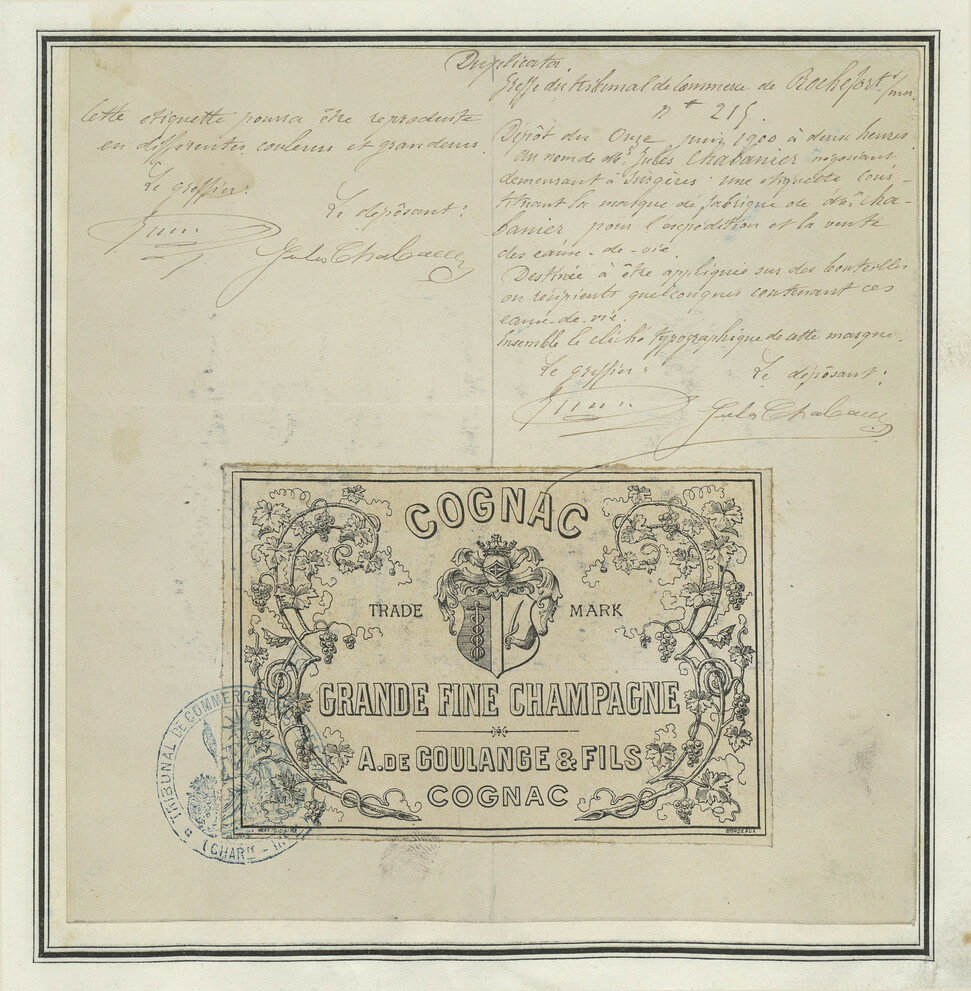 Duplicata
Greffe du tribunal de Commerce de Rochefort s/mer.
n° 215.
Cette etiquette pourra être reproduite
en differentes couleurs et grandeurs.
Le greffier:
Le déposant:
Jules Chabanier
Dépôt du Onze juin 1900 à deux heures
Au nom de Mr Jules Chabanier négociant
demeurant à Surgères une etiquette cons-
tituant la marque de fabrique de dt. Cha-
banier pour l'expédition et la vente
des eaux-de-vie.
Destinée à être appliquée sur des bouteilles
ou récipients quelconques contenant ces
eaux-de-vie.
Ensemble le cliché typographique de cette marque.
Le greffier:
Le déposant:
Jules Chabanier
COGNAC
TRADE MARK
GRANDE FINE CHAMPAGNE
A. DE COULANGE & FILS
COGNAC
BORDEAUX
TRIBUNAL DE COMMERCE
(CHARTE - INF